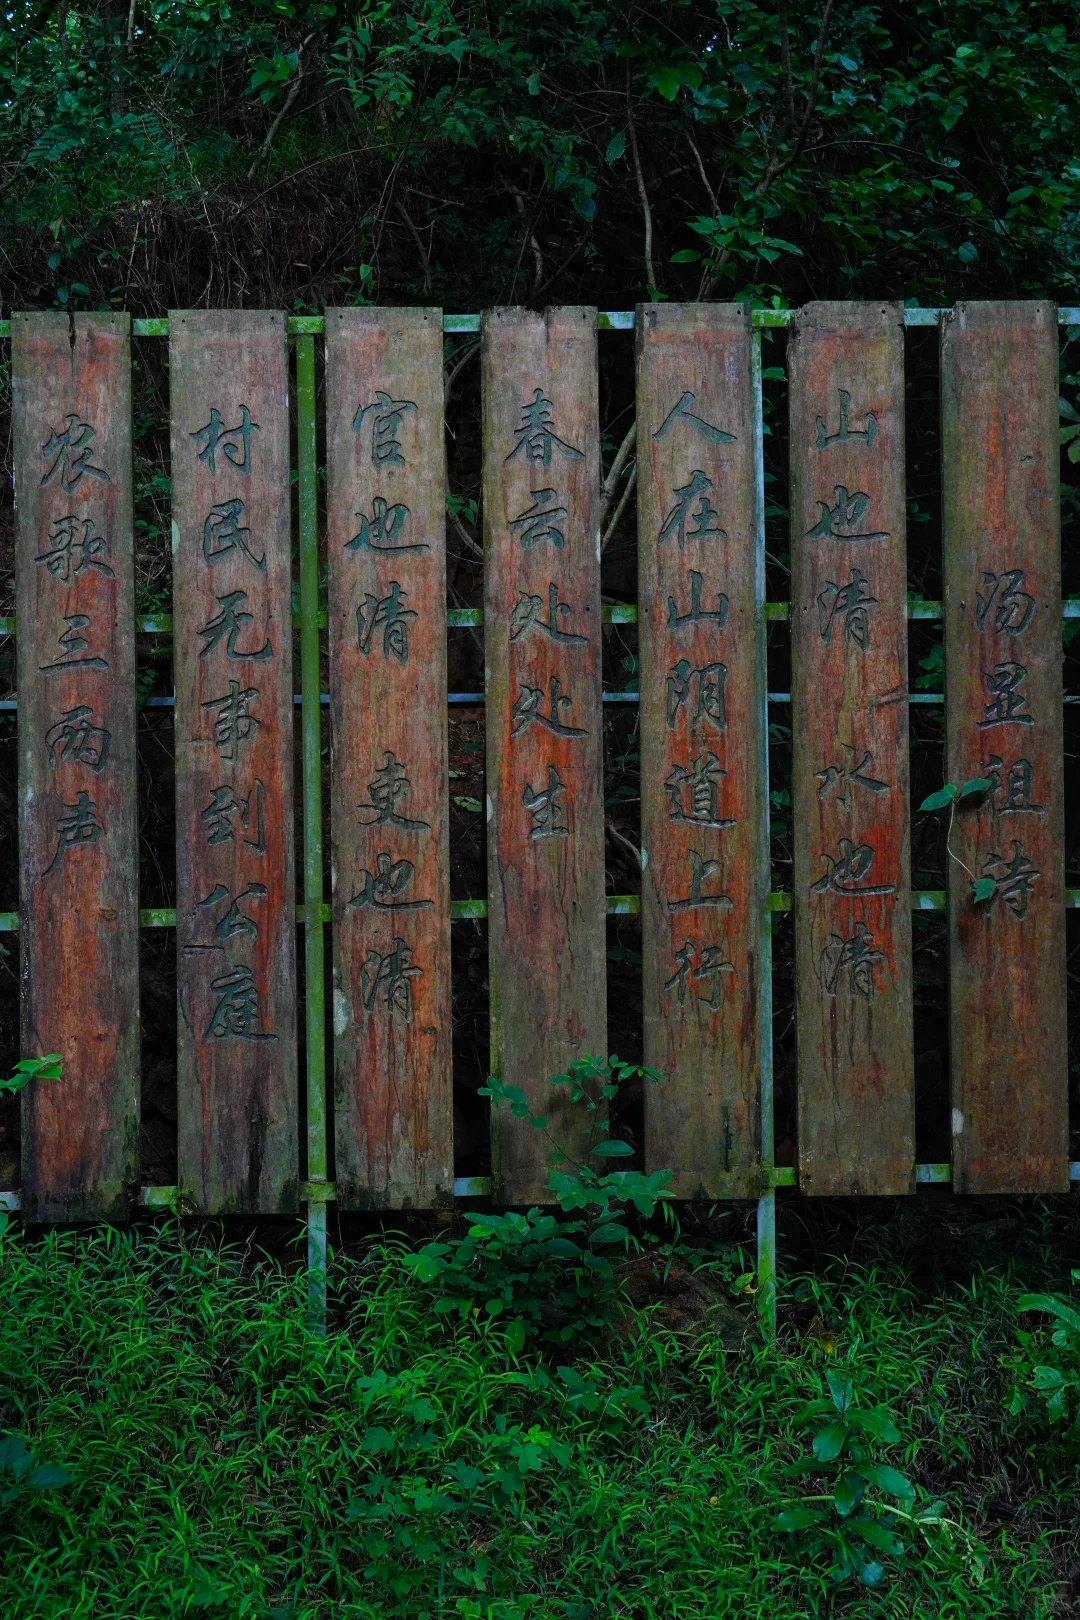 汤显祖诗
山也清 水也清
人在山阴道上行
春云处处生
官也清 吏也清
村民无事到公庭
农歌三两声